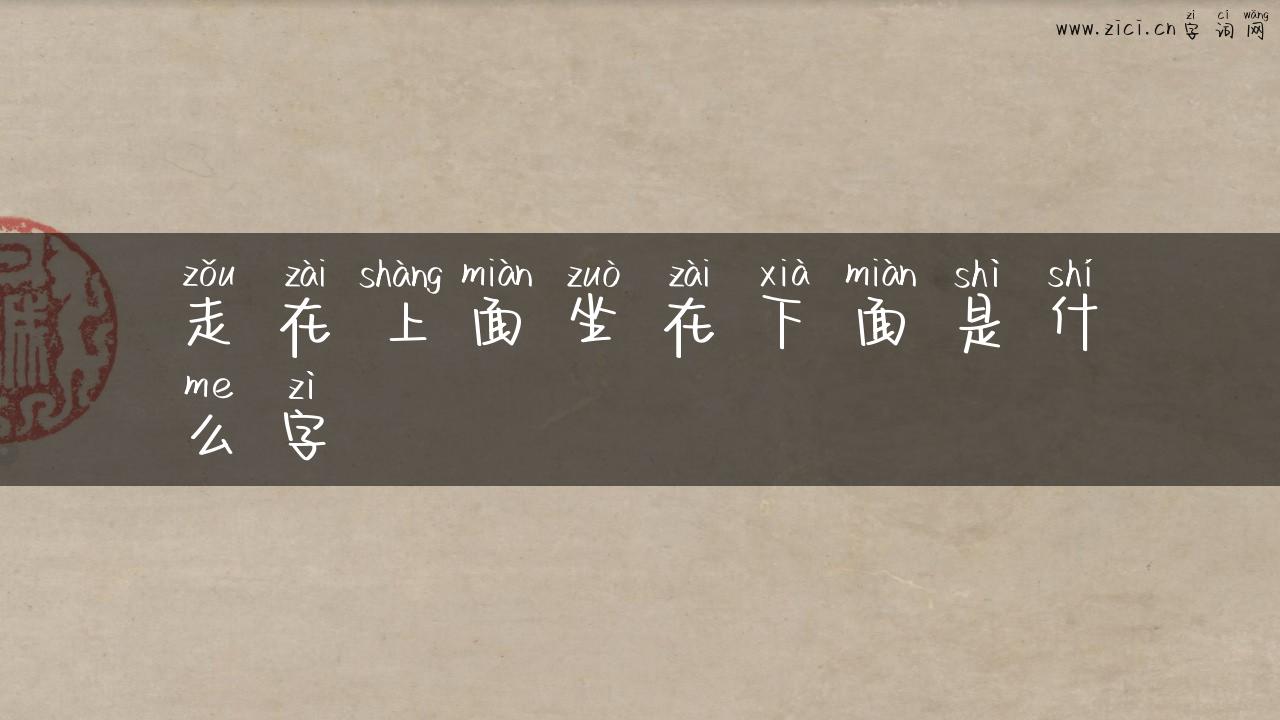 zì cí wǎng
www.zici.cn字词网
zǒu zài shàng miàn zuò zài xià miàn shì shí
走在上面坐在下面是什
me zì
么字